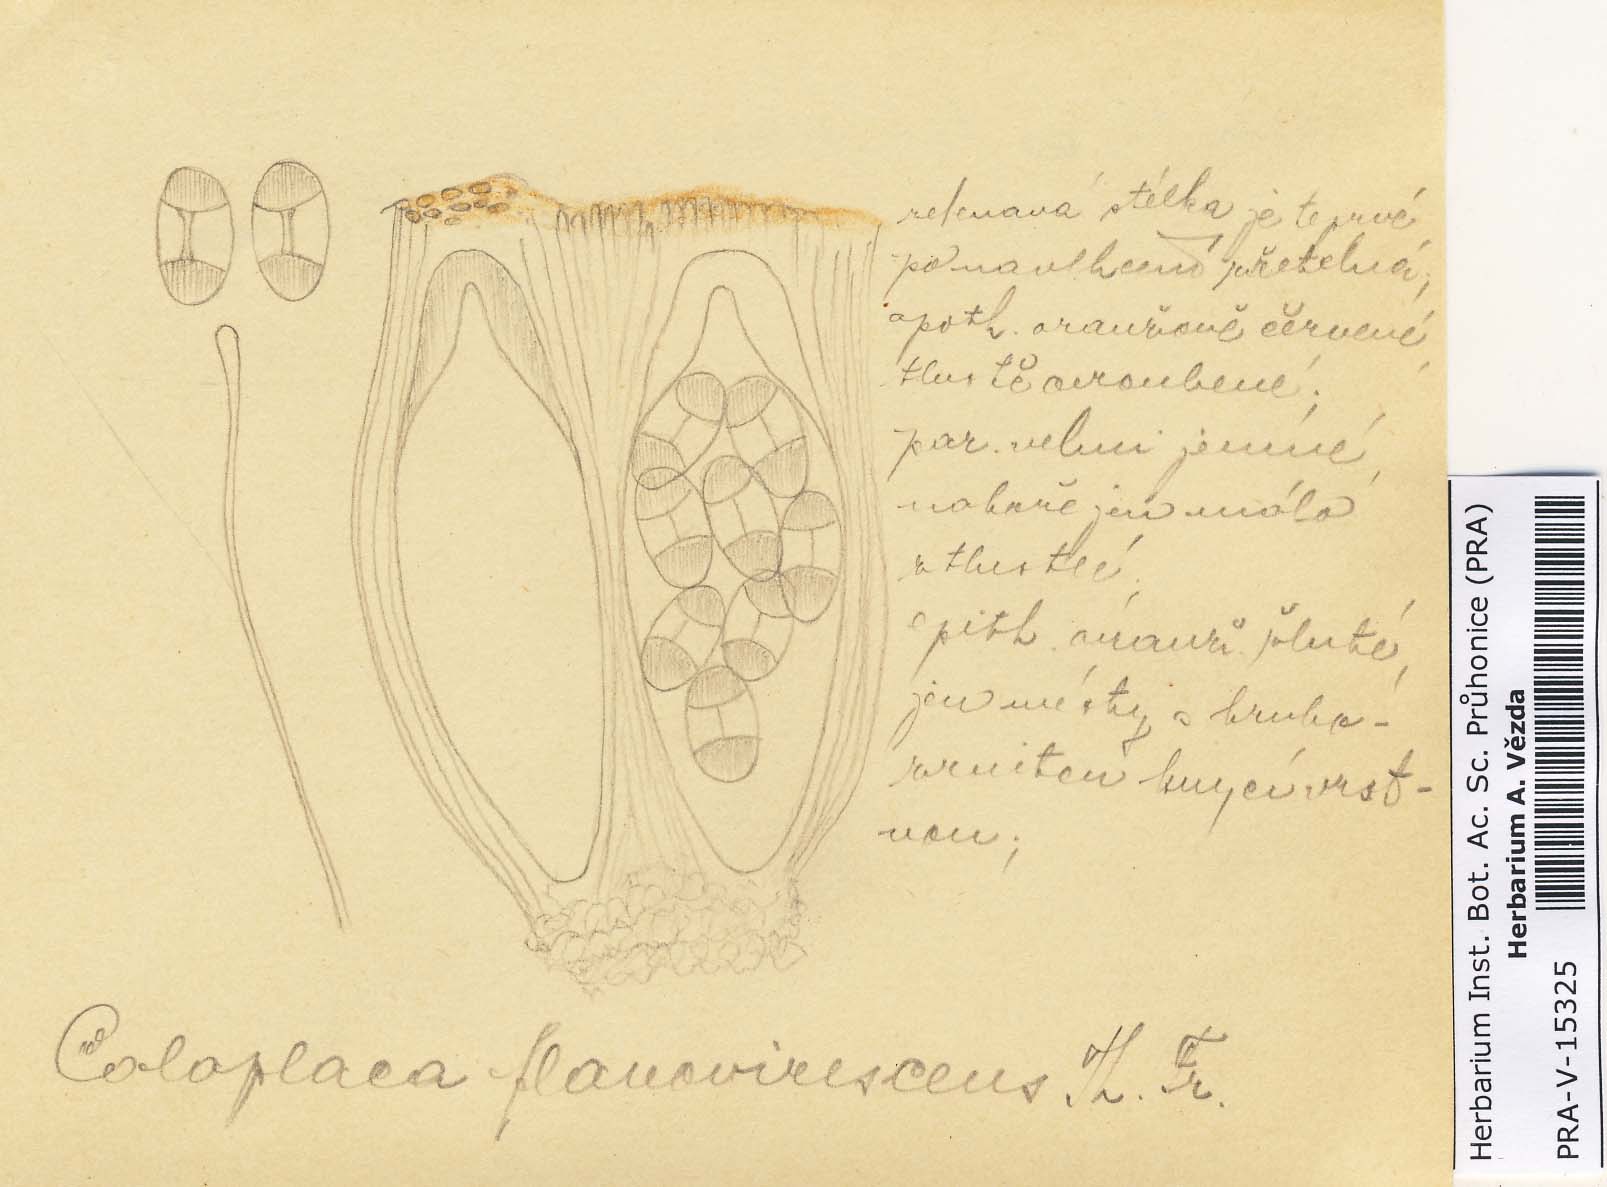 zelenavá stélka je teprvé
po navlhcení zřetelná;
apoth. oranžově červené,
tlustě ovroubené;
par. velmi jemné,
nahoře jen málo
ztlustlé,
epith. oranž. žluté,
jen místy s hrubo-
zrnitou krycí vrst-
vou;
Caloplaca flavovirescens Th. Fr.
Herbarium Inst. Bot. Ac. Sc. Průhonice (PRA)
Herbarium A. Vězda
PRA-V-15325